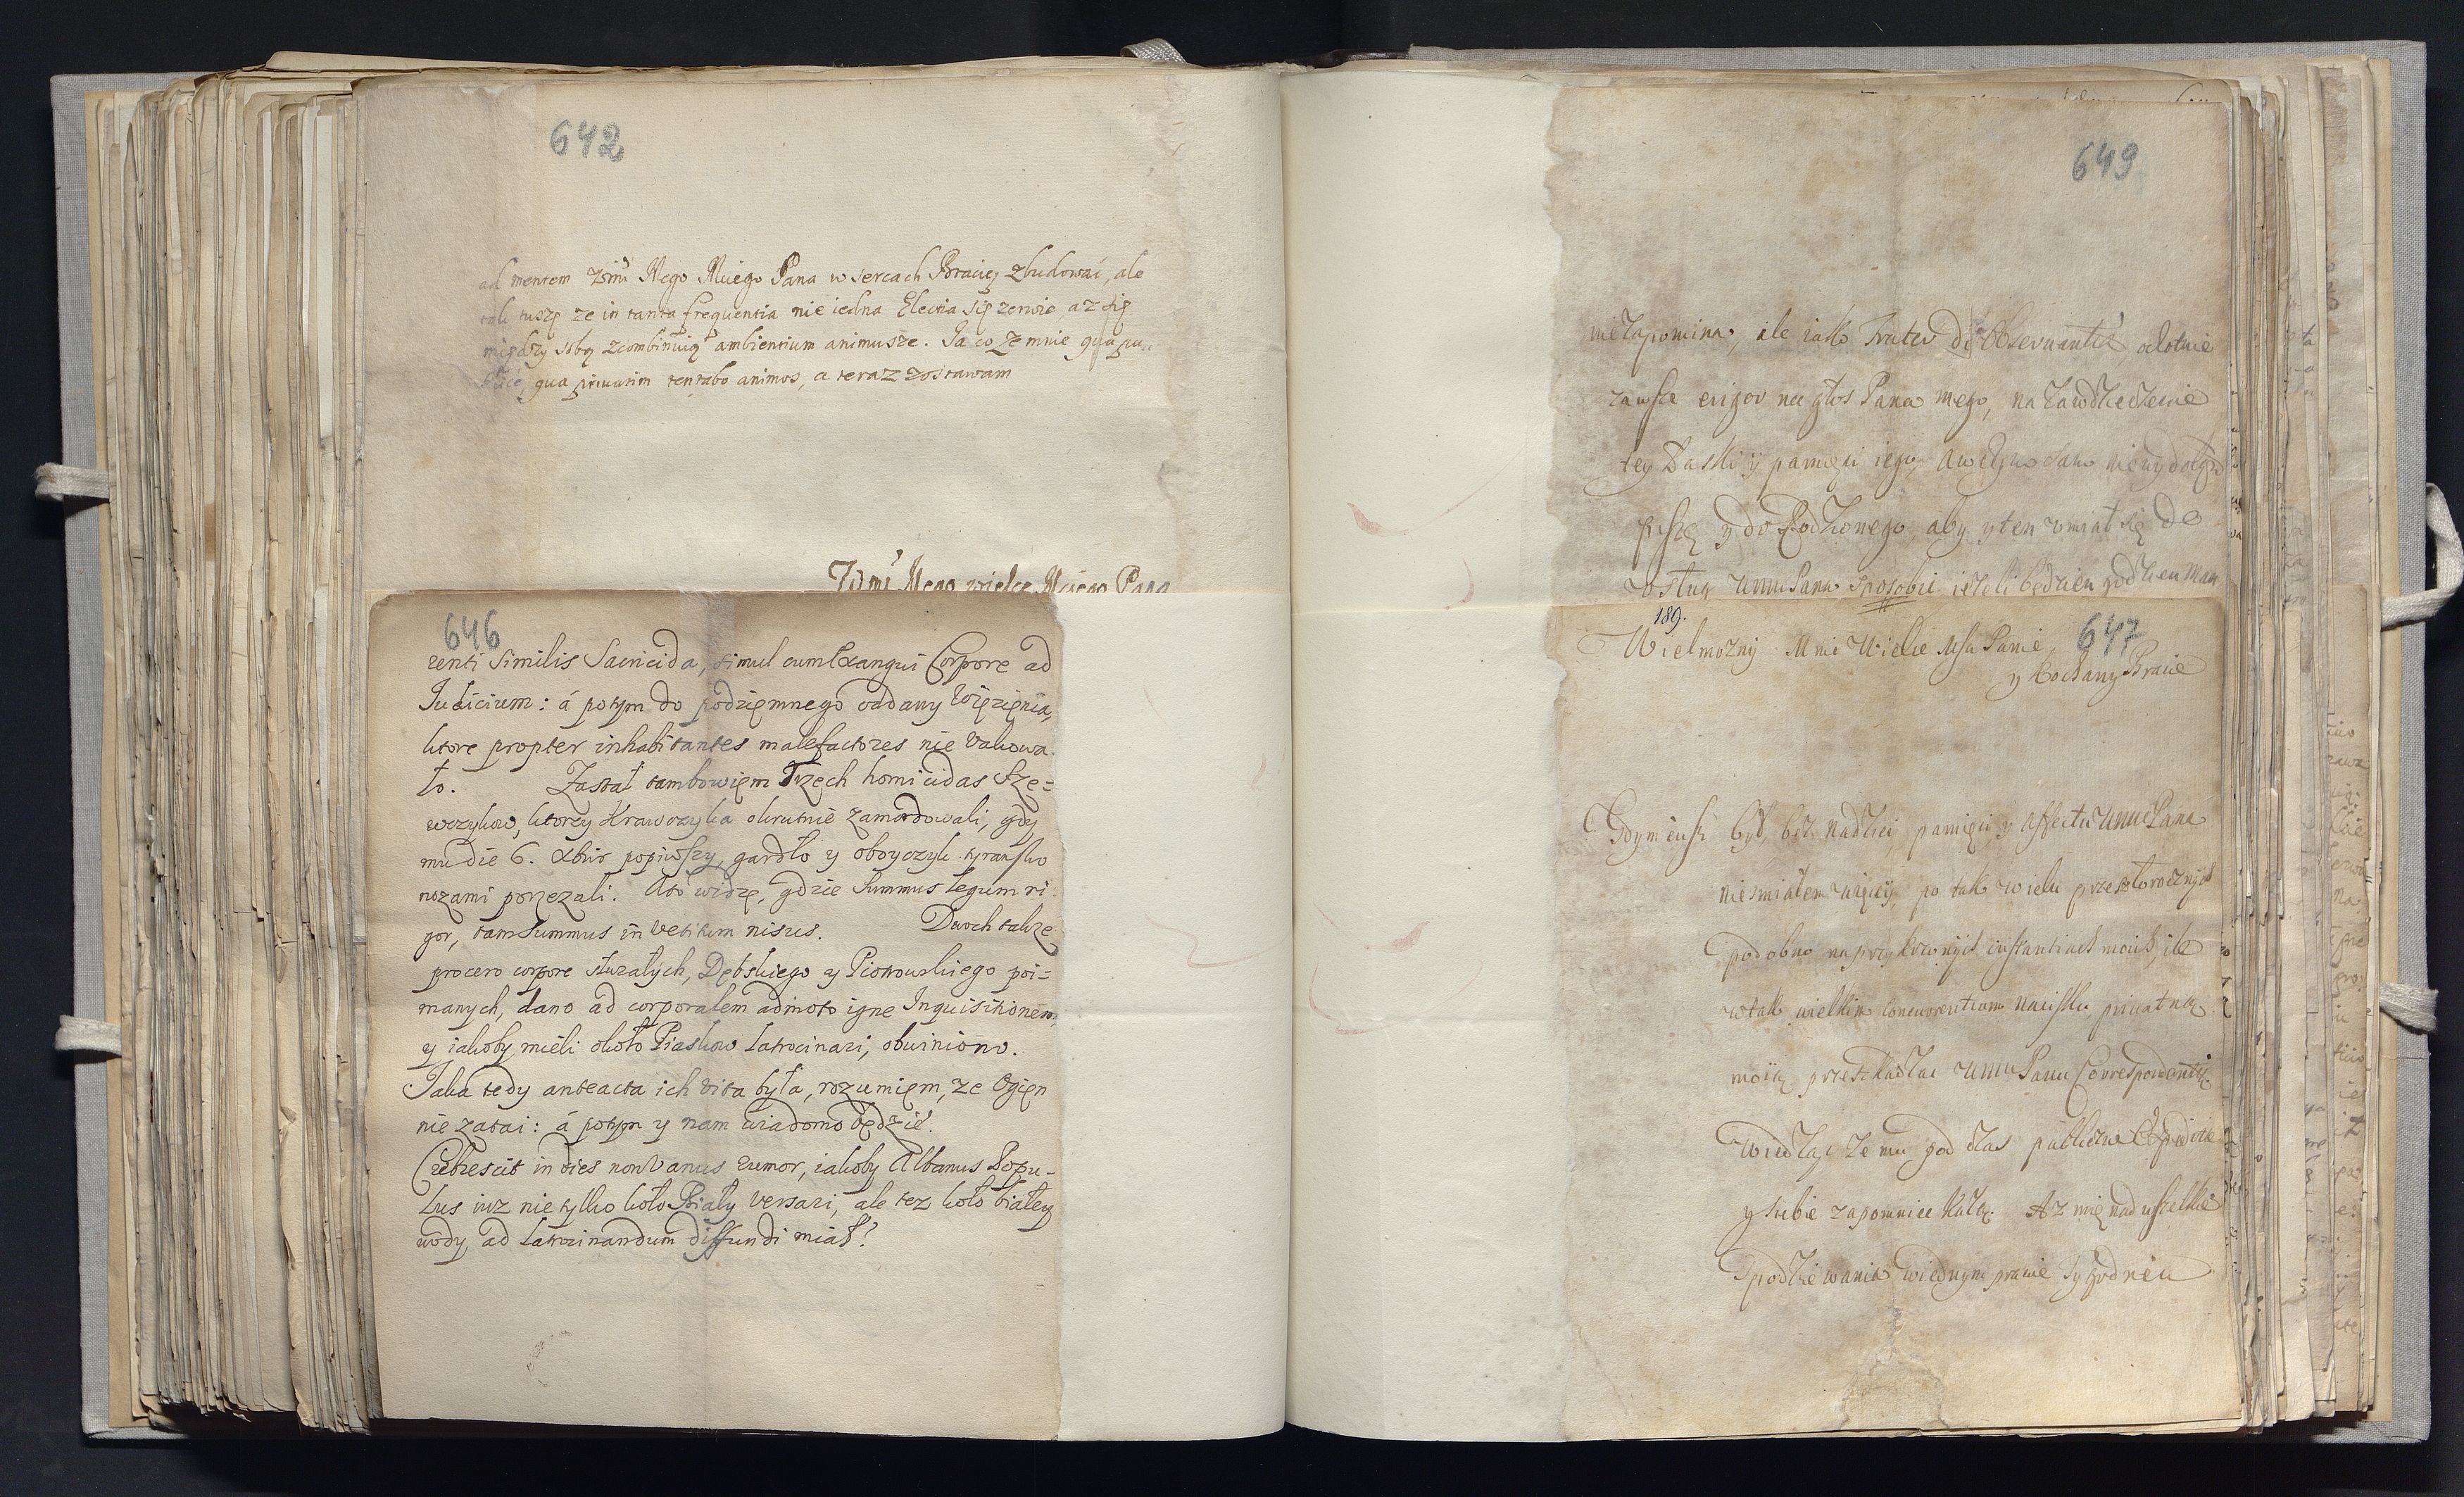 642
ad mentem Wmi Mego Mciego Pana w sercach Braciey zbudować, ale
tusze ze in tanta frequentia nie iedna Electia się zerwie, az się
między sobą zcombinuią ambientium animusze. Ja co ze mnie qua pu-
blice, qua privatim tentabo animos, a teraz zostawam
Wmi Mego wielce Mciego Pana
646
renti similis Sacricida, simul cum Exangui Corpore ad
Iudicium: á potym do podziemnego oddany Więzięnia,
ktore propter inhabitantes malefactores nie vakowa
ło. Zastał tam bowięm Trzech homicidas Sze=
wczykow, ktorzy Krawczyka okrutnie zamordowali, gdy
mu die 6. Xbris popiwszy, gardło y oboyczyk tyransko
nozami porzezali. Ato widzę, gdzie summus legum ri
gor, tam summus in vetitum nisus. Dwoch takze
procero corpore Dębskiego y Piotrowskiego poi=
manych, dano ad corporalem admoto igne Inquisitionem,
y iakoby mieli około Piaskow latrocinari, obwiniono.
Jaka tedy anteacta ich vita była, rozumięm, ze Ogięn
nie zatai: á potym y nam wiadomo będzie.
Crebrescit in dies non Vanus rumor, iakoby Albanus Popu-
lus iuz nie tylko koło Biały versari, ale tez koło białey
wody, ad latrocinandum diffundi miał?
649
nie zapomina, ile iako Frater di Observantia, ochotnie
zawsze erigor na głos Pana mego, na zawdzieczenie
tey Łaski y pamięci iego,
piszę y do Podkomego aby y ten umiał się do
usług Wmm Pana sposobić ieżeli będziem godzien Man
189.
647
Wielmożny Mnie Wielce Msci Panie
y Kochany Bracie
Gdym iusz był bez nadziei pamięci y affectu Wmm Pana
nie smiałem więcey, po tak wielu przeszłorocznych
podobno naprzykrzonych instantiach moich, ile
w tak wielkim concurrentium nacisku, privatną
moiią przeszkadzać Wmm Panu Correspondentią
Widząc ze mu pod czas publiczne Expeditie
y siebie zapomniec każą. Az mię nad wszelkie
spodziewania w iednym prawie tygodniu